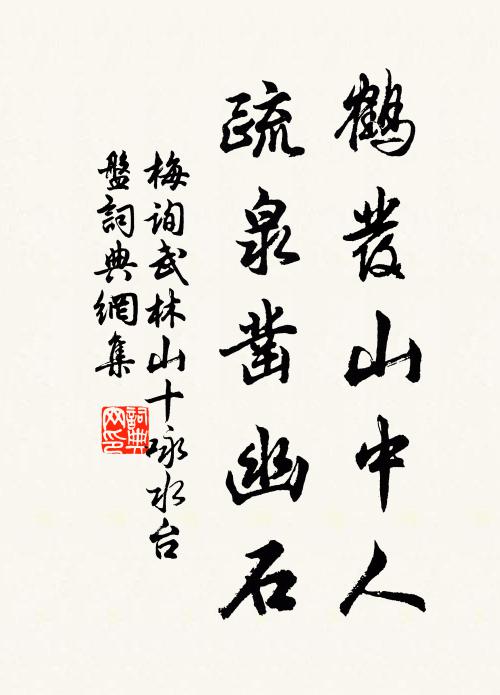 鶴發山中人
疏泉鑿幽石
梅詢武林山十咏水台
盤詞典網集
詞典
网印